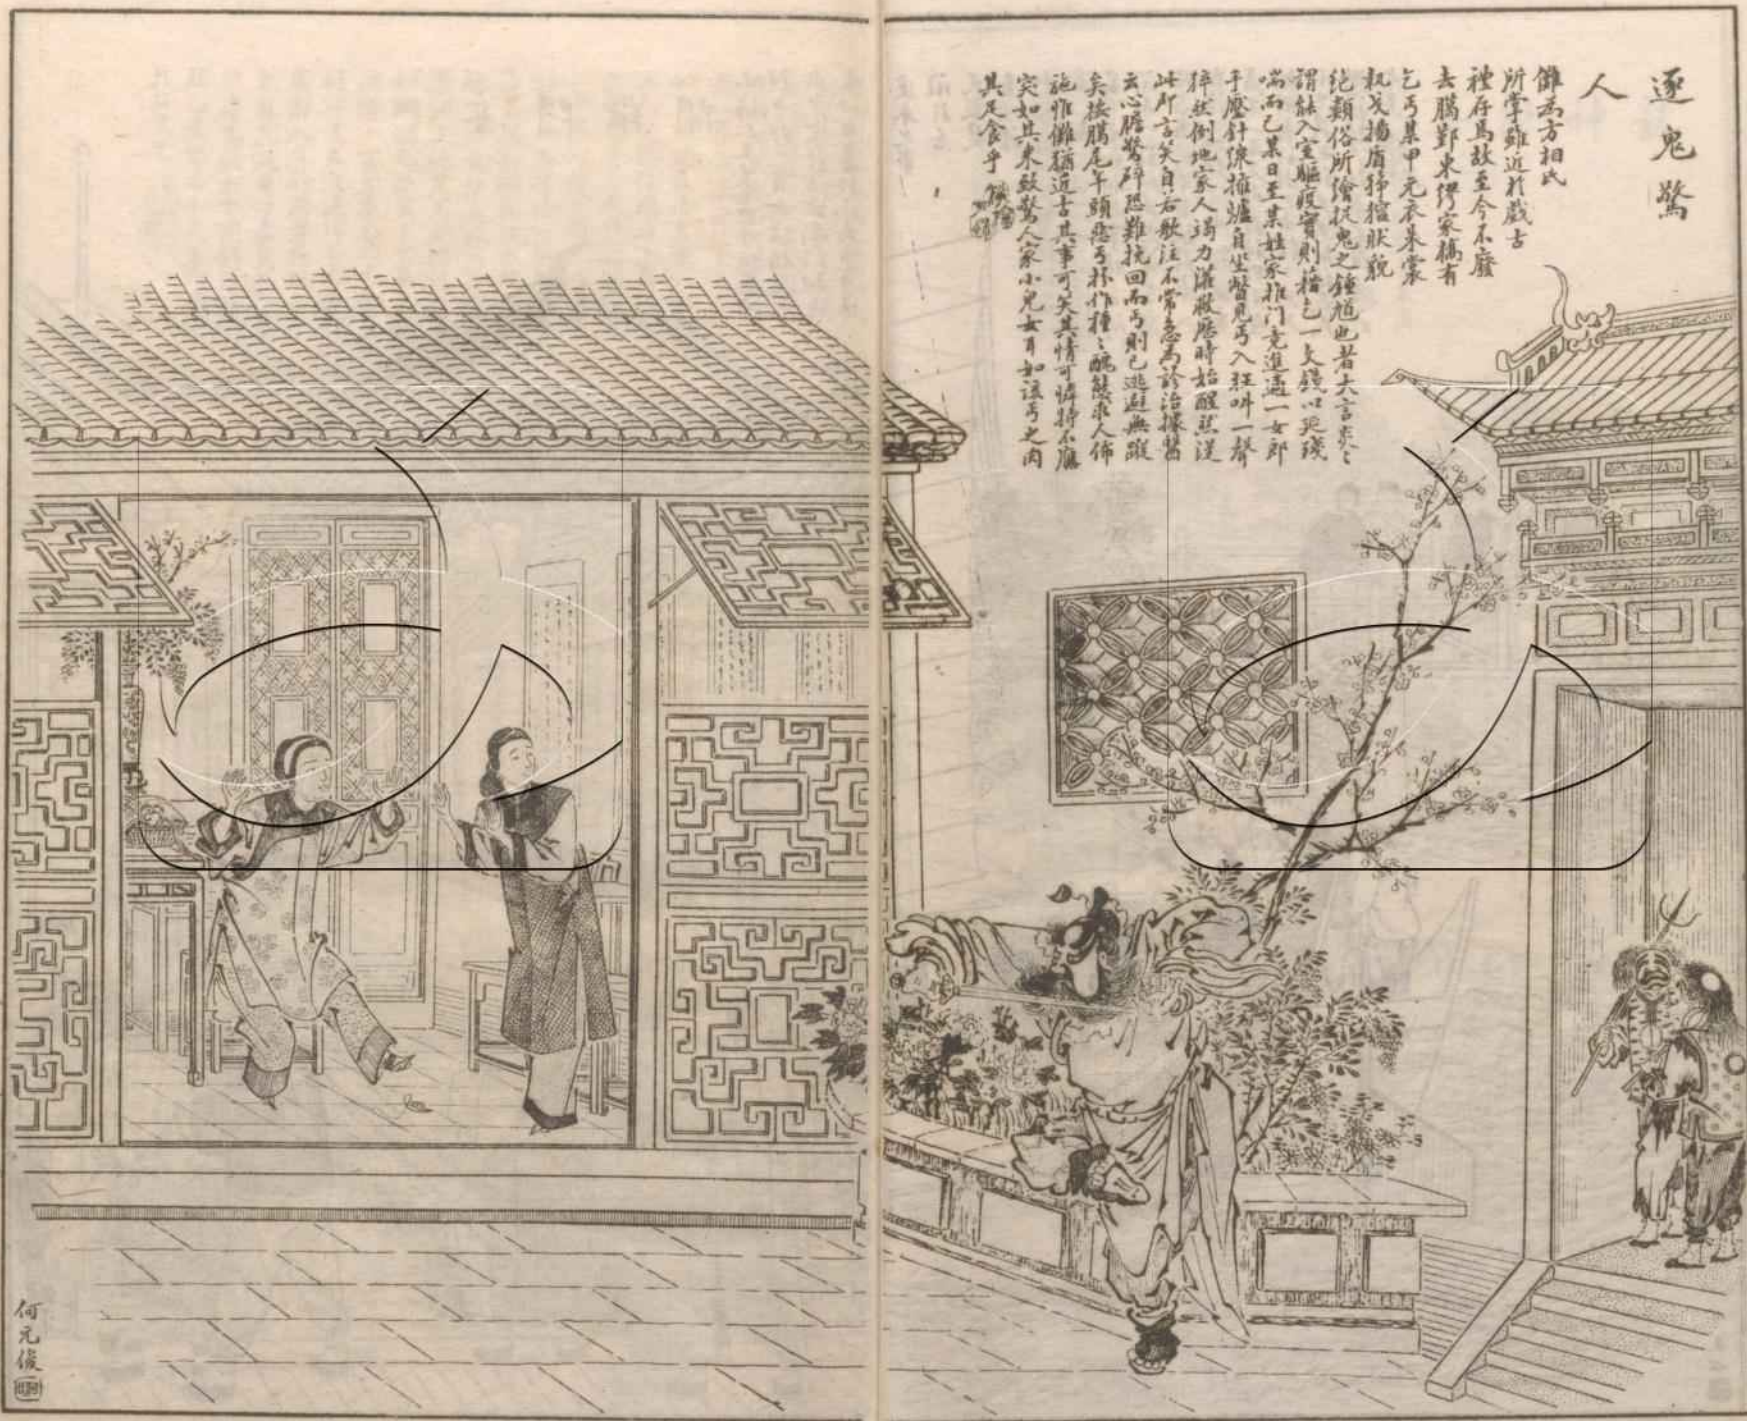 逐鬼驚
人
儺為方相氏
所掌雖近於戲古
禮存焉故至今不廢
去臘鄞東繆家橋有
乞丐某甲元衣朱裳
執戈揚盾猙獰狀貌
絕類俗所繪捉鬼之鍾馗也者大言炎々
謂能入室驅疫實則藉乞一文錢以延殘
喘而已某日至某姓家推門竟進適一女郎
手壓針線擁爐自坐瞥見丐入狂叫一聲
猝然倒地家人竭力灌救歷時始醒然從
此所言笑自若歌泣不常急為診治據醫
云心膽驚碎恐難挽回而丐則已逃避無蹤
矣按臘尾年頭惡丐扮作種々醜態求人佈
施惟儺猶近古其事可笑其情可憐特不應
突如其來致驚人家小兒女耳如該丐之肉
其足食乎
何元俊